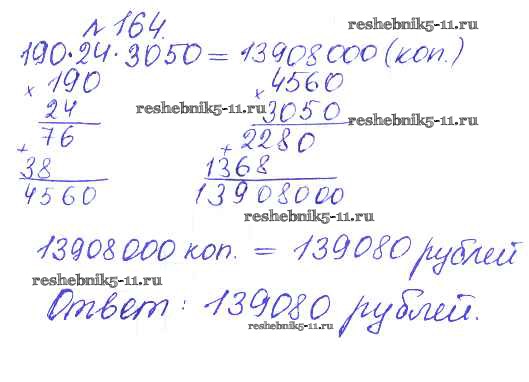 № 164.
reshebnik5-11.ru
190·24·3050=13908000 (коп.)
× 190
24
+ 76
38
4560
reshebnik5-11.ru
× 4560
3050
reshebnik5-11.ru
+ 2280
1368
13908000
reshebnik5-11.ru
13908000 коп. = 139080 рублей
reshebnik5-11.ru
Ответ: 139080 рублей.
reshebnik5-11.ru